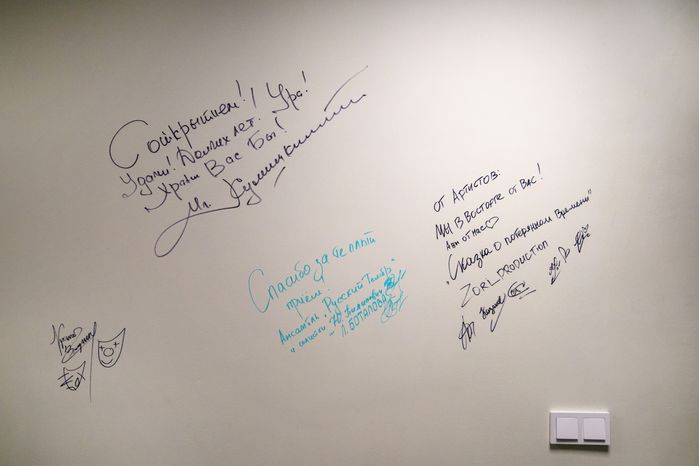 С открытием! Ура!
Удачи! Долгих лет.
Храни Вас Бог!
Спасибо за тёплый
приём!
Ансамбль "Русский Тембр"
Л. БОТАЛОВА
ОТ АРТИСТОВ:
МЫ В ВОСТОРГЕ ОТ ВАС!
А вы от нас♡
"Сказка о потерянном времени"
ZORI_PRODUCTION